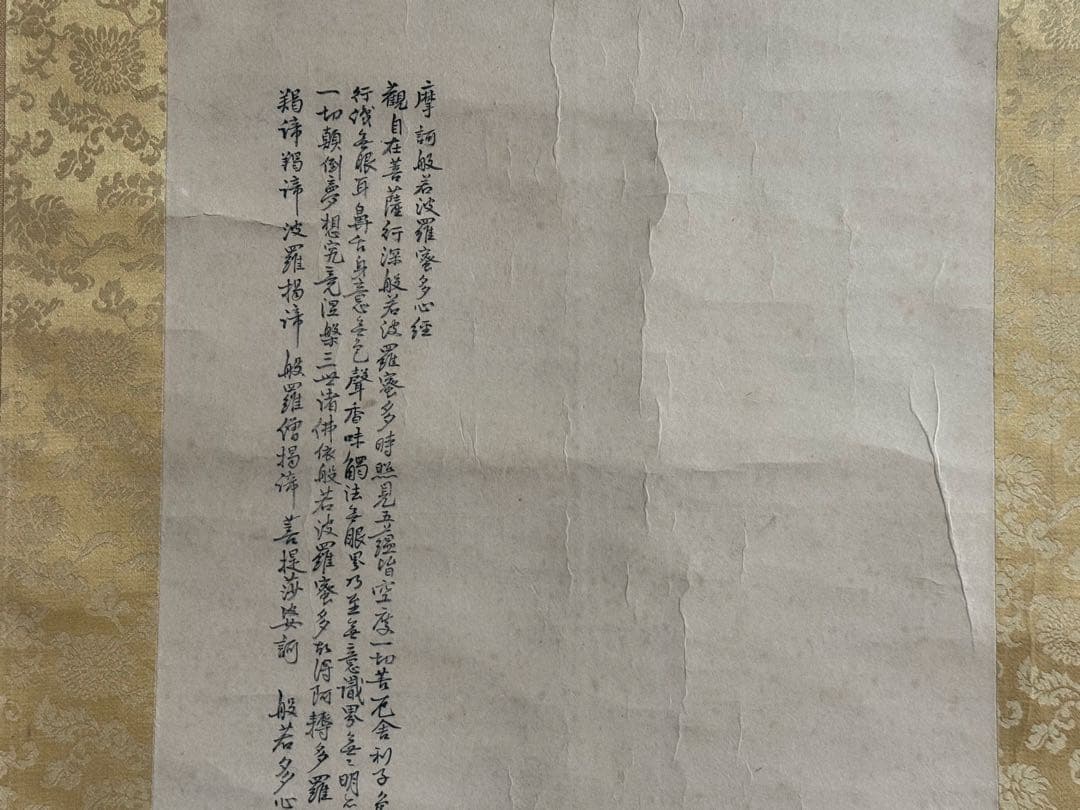 摩訶般若波羅蜜多心經
觀自在菩薩行深般若波羅蜜多時照見五蘊皆空度一切苦厄舍利子色
行識無眼耳鼻舌身意無色聲香味觸法無眼界乃至無意識界無〻明
一切顛倒夢想究竟涅槃三世諸佛依般若波羅蜜多故得阿耨多羅
羯諦羯諦 波羅揭諦 般羅僧揭諦 菩提莎婆訶 般若多心